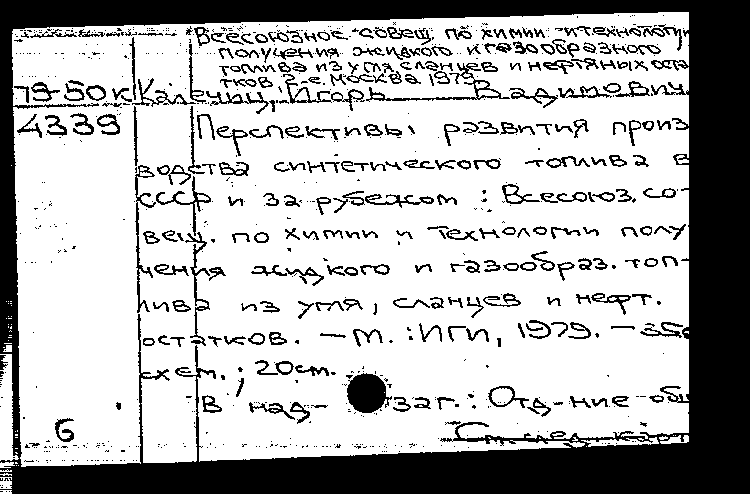 Всесоюзное совещ. по химии и технологии
получения жидкого и газообразного
топлива из угля, сланцев и нефтяных оста
тков. 2-е. Москва 1979
79-50к Калечиц, Игорь Вадимович.
4339 Перспективы развития произ
водства синтетического топлива в
СССР и за рубежом : Всесоюз. со-
вещ. по химии и технологии полу
чения жидкого и газообраз. топ-
лива из угля, сланцев и нефт.
остатков. — М. : ИГИ, 1979. —
схем. ; 20см.
В над- заг.: Отд-ние общ
6 См. след. карт